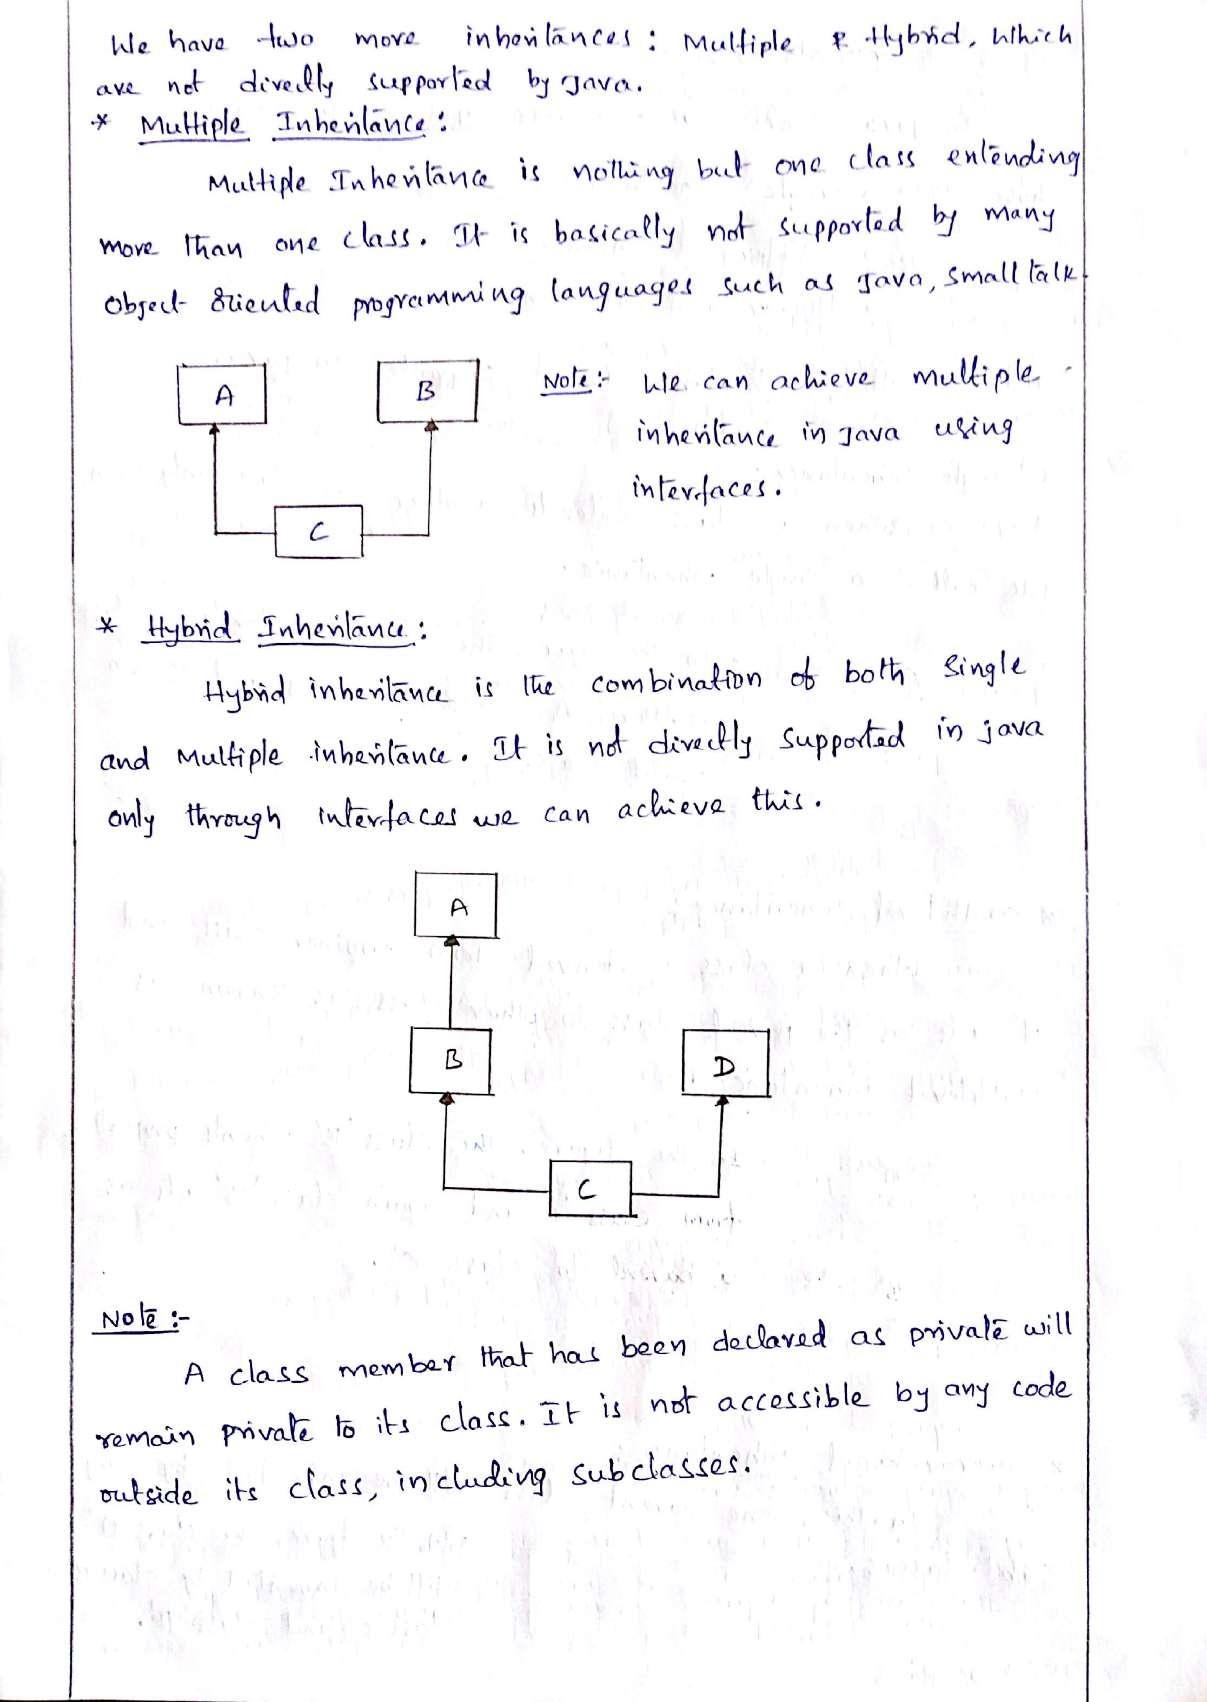 We have two more inheritances : Multiple & Hybrid, which
are not directly supported by Java.
* Multiple Inheritance :
Multiple Inheritance is nothing but one class extending
more than one class. It is basically not supported by many
Object Oriented programming languages such as Java, Small talk.
A
B
C
Note :- We can achieve multiple
inheritance in Java using
interfaces.
* Hybrid Inheritance :
Hybrid inheritance is the combination of both Single
and Multiple inheritance. It is not directly supported in java
only through interfaces we can achieve this.
A
B
D
C
Note :-
A class member that has been declared as private will
remain private to its class. It is not accessible by any code
outside its class, including subclasses.